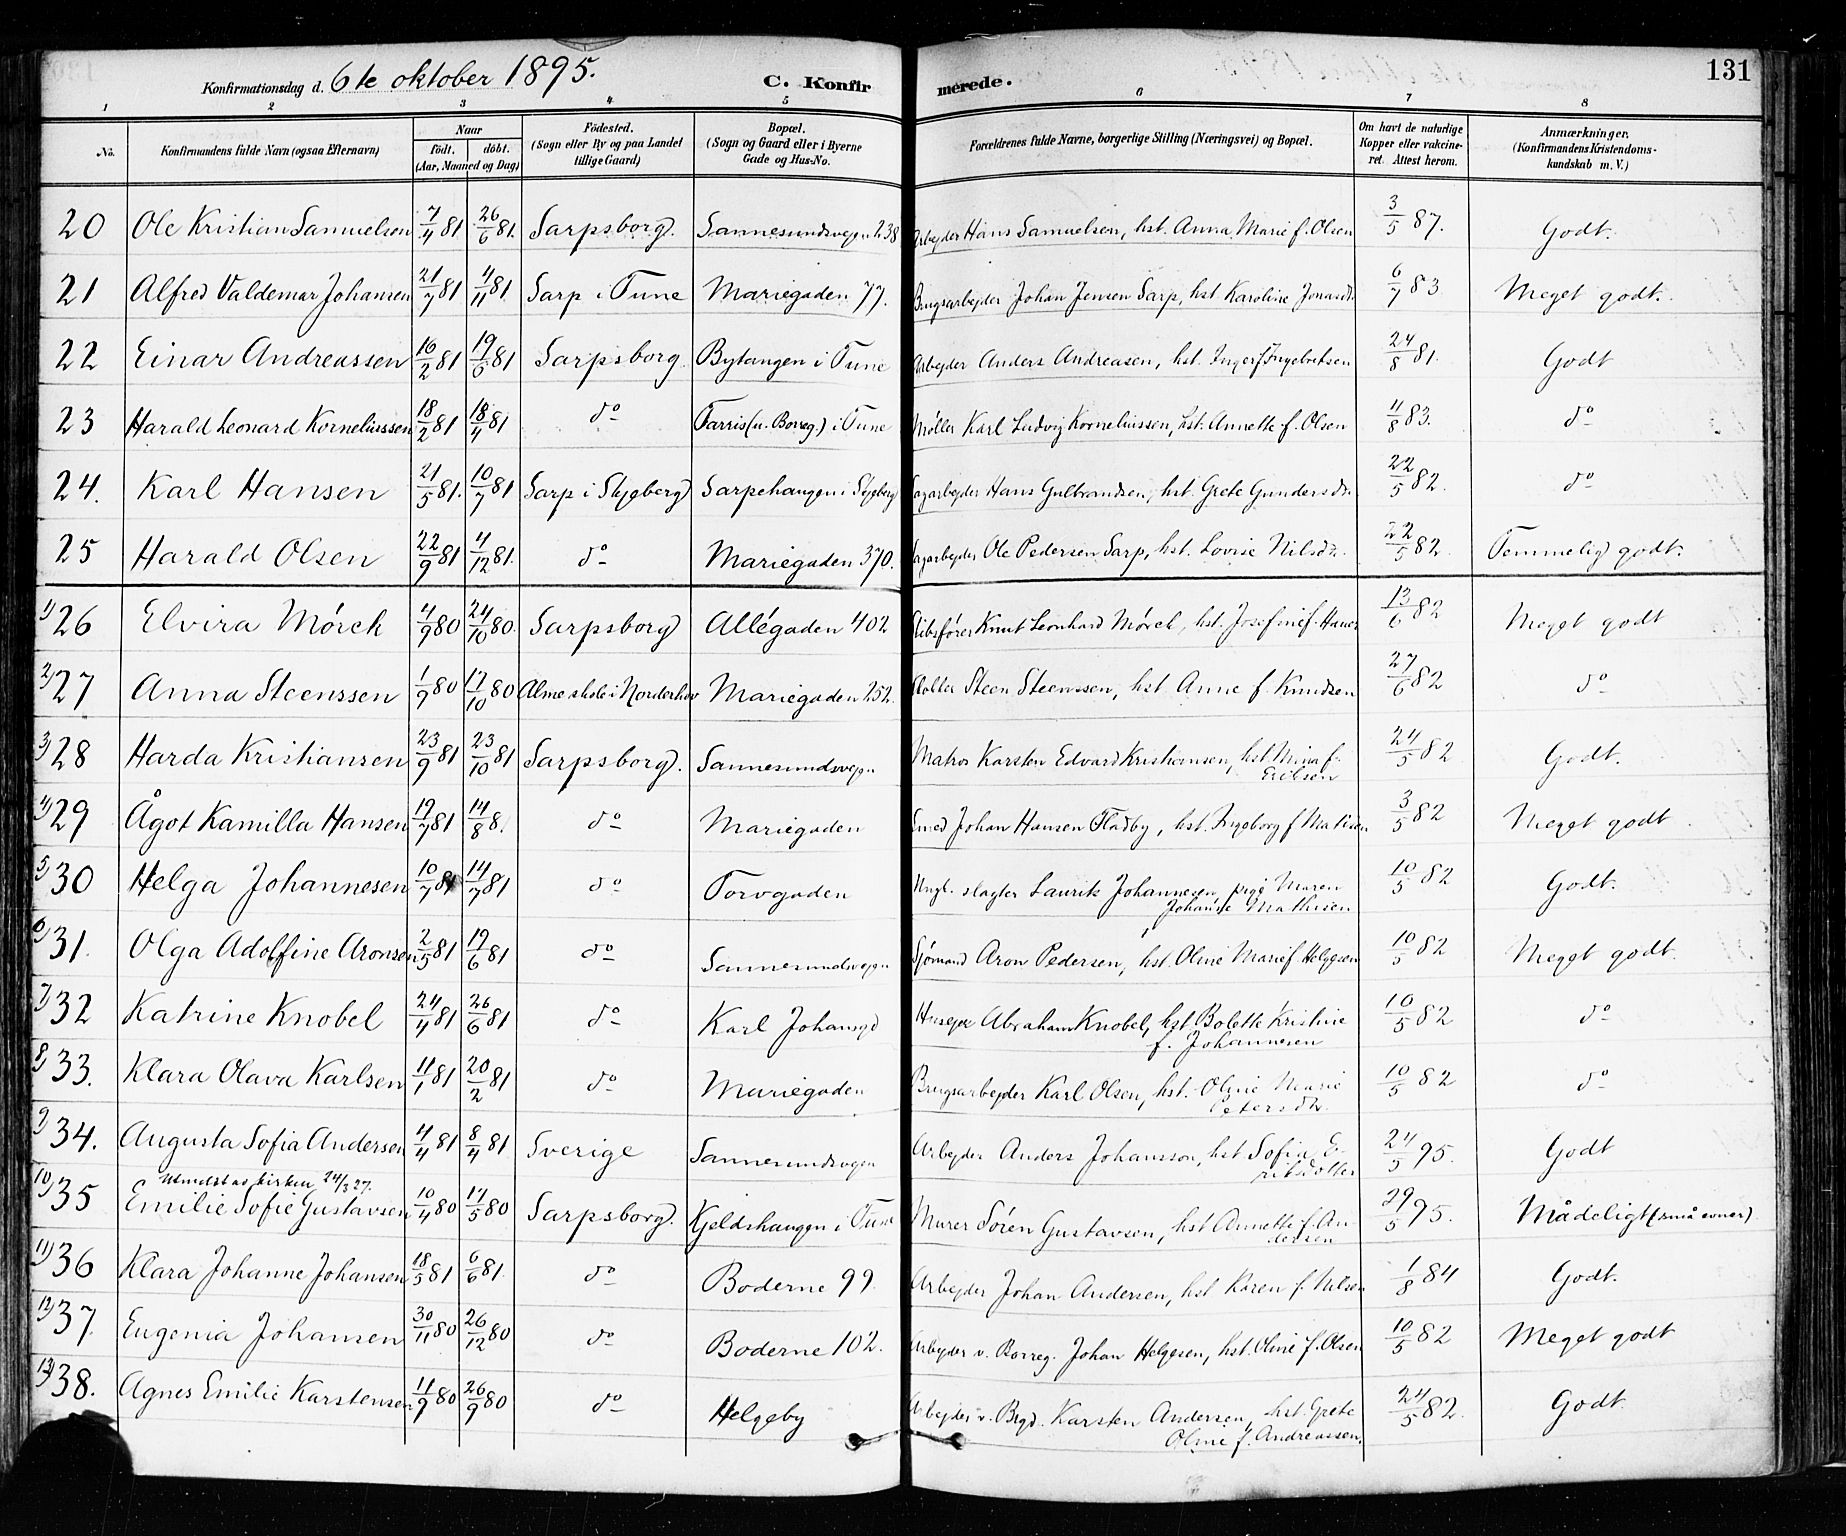 131
Konfirmationsdag d. 6te oktober 1895.
C. Konfirmerede.
1 2 3 4 5 6 7 8
No. Konfirmandens fulde Navn (ogsaa Efternavn) Naar født. døbt. (Aar, Maaned og Dag) Födested. (Sogn eller By og paa Landet tillige Gaard) Bopæl. (Sogn og Gaard eller i Byerne Gade og Hus-No. Forældrenes fulde Navne, borgerlige Stilling (Næringsvei) og Bopæl. Om havt de naturlige Kopper eller vakcineret. Attest herom. Anmærkninger. (Konfirmandens Kristendomskundskab m. V.)
20 Ole Kristian Samuelsen 7/4 81 26/6 81. Sarpsborg. Sannesundsvejen 238 Arbejder Hans Samuelsen, hst. Anna Marie f. Olsen 3/5 87. Godt.
21 Alfred Valdemar Johansen 21/7 81 4/11 81. Sarp i Tune Mariegaden 77. Brugsarbejder Johan Jensen Sarp, hst. Karoline Jonasdt. 6/7 83 Meget godt.
22 Einar Andreassen 16/2 81 19/6 81 Sarpsborg Bytangen i Tune Arbejder Anders Andreasen, hst. Inger f. Ingebretsen 24/8 81. Godt
23 Harald Leonard Korneliussen 18/2 81 18/4 81 do Tarris (u. Borreg.) i Tune Møller Karl Ludvig Korneliussen, hst. Annette f. Olsen 4/8 83. do
24. Karl Hansen 21/5 81. 10/7 81 Sarp i Skjeberg Sarpehaugen i Skjeberg Sagarbejder Hans Gulbrandsen, hst. Grete Gundersdt. 22/5 82. do
25 Harald Olsen 22/9 81 4/12 81. do Mariegaden 370. Sagarbejder Ole Pedersen Sarp, hst. Lovise Nilsdt. 22/5 82. Temmelig godt.
1) 26 Elvira Mörck 4/9 80 24/10 80. Sarpsborg Allégaden 402 Skibsfører Knut Leonhard Mörck, hst. Josefine f. 13/6 82 Meget godt
2) 27 Anna Steenssen 1/9 80 17/10 80 Alme skole i Norderhov Mariegaden 252. Steen Steenssen, hst. Anne f. Knudsen 27/6 82 do
3) 28 Harda Kristiansen 23/9 81 23/10 81 Sarpsborg. Sannesundsvejen Matros Karsten Edvard Kristiansen, hst. Mina f. Eriksen 24/5 82 Godt.
4) 29 Ågot Kamilla Hansen 19/7 81 14/8 8. do Mariegaden Smed Johan Hansen Fladby, hst. Ingeborg f Matisen 3/5 82 Meget godt
5) 30 Helga Johannesen 10/7 81 14/7 81 do Torvgaden Ungk. slagter Laurits Johannesen, pige Maren Johanne Mathisen 10/5 82 Godt.
6) 31. Olga Adolfine Aronsen 2/5 81 19/6 81 do Sannesundsvejen Sjømand Aron Pedersen, hst. Oline Marie f. Helgesen 10/5 82 Meget godt.
7) 32 Katrine Knobel 24/4 81 26/6 81 do Karl Johansgd Husejer Abraham Knobel, hst. Bolette Kristine f. Johannesen 10/5 82 do
8) 33. Klara Olava Karlsen 11/1 81 20/2 81 do Mariegaden Brugsarbejder Karl Olsen, hst. Oline Marie Petersdt. 10/5 82 do
9) 34. Augusta Sofia Andersen 4/4 81 8/4 81 Sverige Sannesundsvejen Arbejder Anders Johansson, hst Sofia Eriksdotter 24/5 95. Godt
Utmeldt av kirken 24/3 27.
10) 35 Emilie Sofie Gustavsen 10/4 80 17/5 80 Sarpsborg. Kjeldshaugen i Tune Murer Sören Gustavsen, hst Annette f. Andersen 29/5 95. Mådeligt (små evner).
11) 36 Klara Johanne Johansen 18/5 81 6/6 81. do Boderne 99. Arbejder Johan Andersen, hst Karen f. Nilsen 1/8 84 Godt.
12) 37. Eugenia Johansen 30/11 80 26/12 80 do Boderne 102. Arbejder v. Borreg. Johan Helgesen, hst. Oline f. Olsen 10/5 82 Meget godt
13) 38. Agnes Emilie Karstensen 11/9 80 26/9 80 do Helgeby Arbejder v. Brgd. Karsten Andersen, hst. Grete Oline f. Andreassen. 24/5 82. Godt.